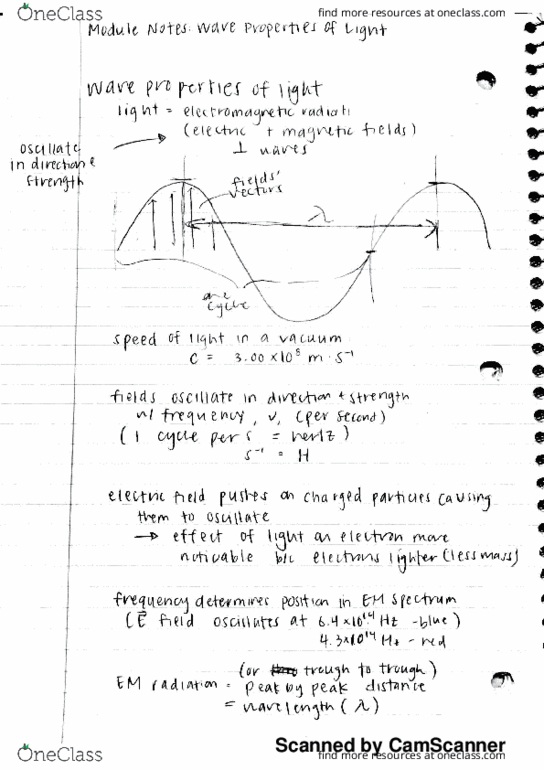 OneClass
find more resources at oneclass.com
find more resources at oneclass.com
Module Notes: Wave Properties of Light
Wave properties of light
light = electromagnetic radiati
(electric + magnetic fields)
⊥ waves
oscillate
in direction &
strength
fields'
vectors
λ
one
cycle
speed of light in a vacuum
c = 3.00 x10⁸ m · s⁻¹
fields oscillate in direction + strength
w/ frequency, v, (per second)
(1 cycle per s = hertz)
s⁻¹ = H
electric field pushes on charged particles causing
them to oscillate
→ effect of light on electron more
noticable b/c electrons lighter (less mass)
frequency determines position in EM spectrum
(E⃗ field oscillates at 6.4 x10¹⁴ Hz - blue)
4.3x10¹⁴ Hz - red
(or trough to trough)
EM radiation = peak by peak distance
= wavelength (λ)
Scanned by CamScanner
OneClass
find more resources at oneclass.com